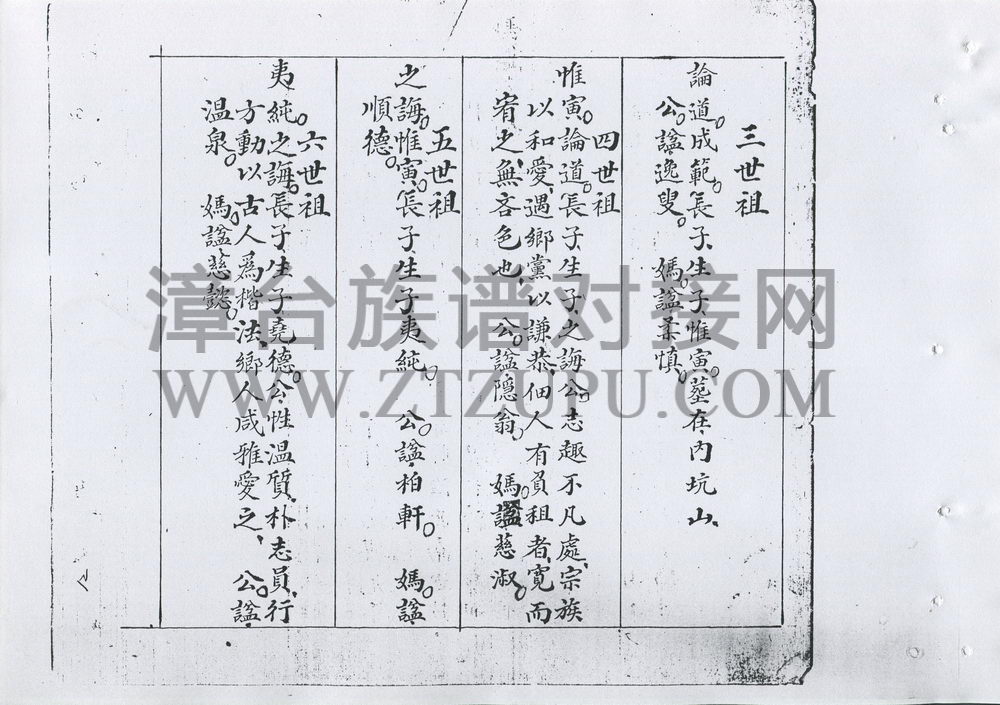 三世祖
論道。成範。長子、生子、惟寅。墓在內坑山、
公。諡逸叟。 媽。諡柔慎。
四世祖
惟寅。論道。長子、生子、之誨。公志趣不凡、處宗族
以和愛、遇鄉黨以謙恭、佃人有負租者、寬而
宥之、無吝色也、公。諡隱翁。 媽。諡慈淑。
五世祖
之誨。惟寅。長子、生子夷純。 公。諡柏軒。 媽。諡
順德。
六世祖
夷純。之誨。長子、生子堯德。公性溫質、朴志員、行
方動以古人為楷法、鄉人咸雅愛之、 公。諡
溫泉。 媽。諡慈懿。
漳台族谱对接网
WWW.ZTZUPU.COM